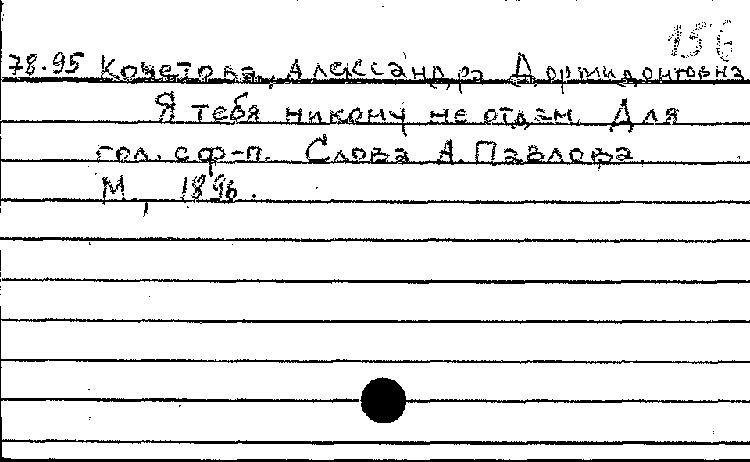 156
78.95 Кочетова, Александра Дормидонтовна
Я тебя никому не отдам. Для
гол. с ф-п. Слова А. Павлова.
М., 1896.